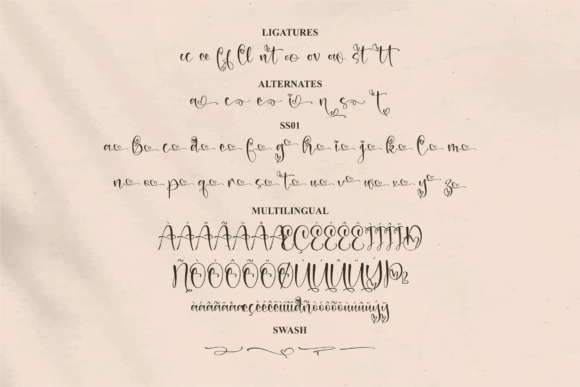 LIGATURES
cc ee ff ll nt co ov ao st tt
ALTERNATES
a c e i n s t
SS01
a b c d e f g h i j k l m
n o p q r s t u v w x y z
MULTILINGUAL
ÀÁÂÃÄÅÆÇÈÉÊËÌÍÎÏÐ
ÑÒÓÔÕÖØÙÚÛÜÝÞ
àáâãäåæçèéêëìíîïðñòóôõöùúûüýÿ
SWASH